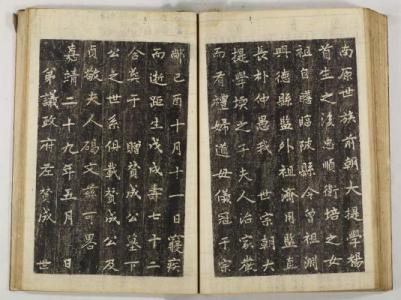 南原世族前朝大提學楊
首生之後忠順衛培之女
祖自陂縣令曾祖淵
興德縣監外祖濟用監直
長朴仲愚我 世宗朝大
提學堧之子夫人治家嚴
而有禮婦道母儀冠于宗
己酉十月十一日寢疾
而逝距生戊戌壽七十二
合葬于 贈賛成公墓下
公之世系俱載賛成公及
貞敬夫人碣文玆可畧
嘉靖二十九年五月 日
弟議政府左賛成 世